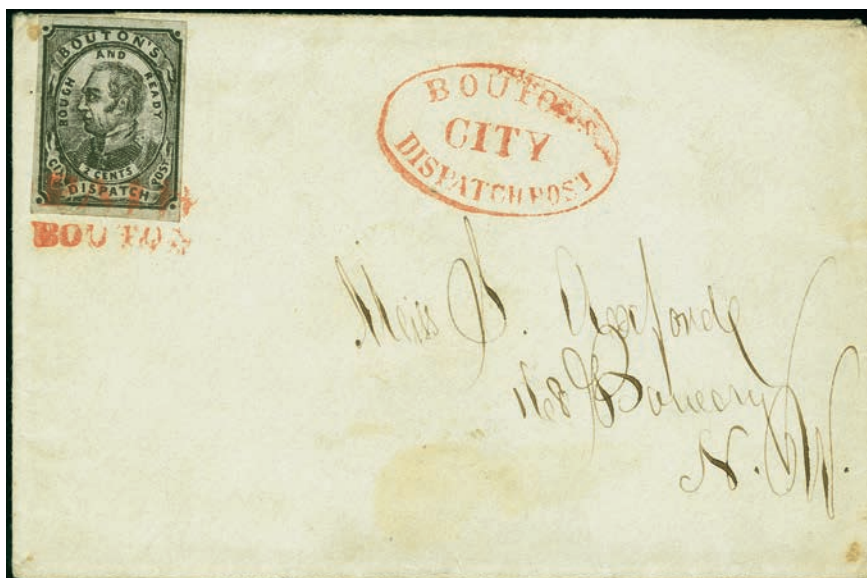 BOUTON'S
ROUGH AND READY
2 CENTS
CITY DISPATCH POST
BOUTON
BOUTON'S
CITY
DISPATCH POST
Miss S.
168 Bowery
N.Y.